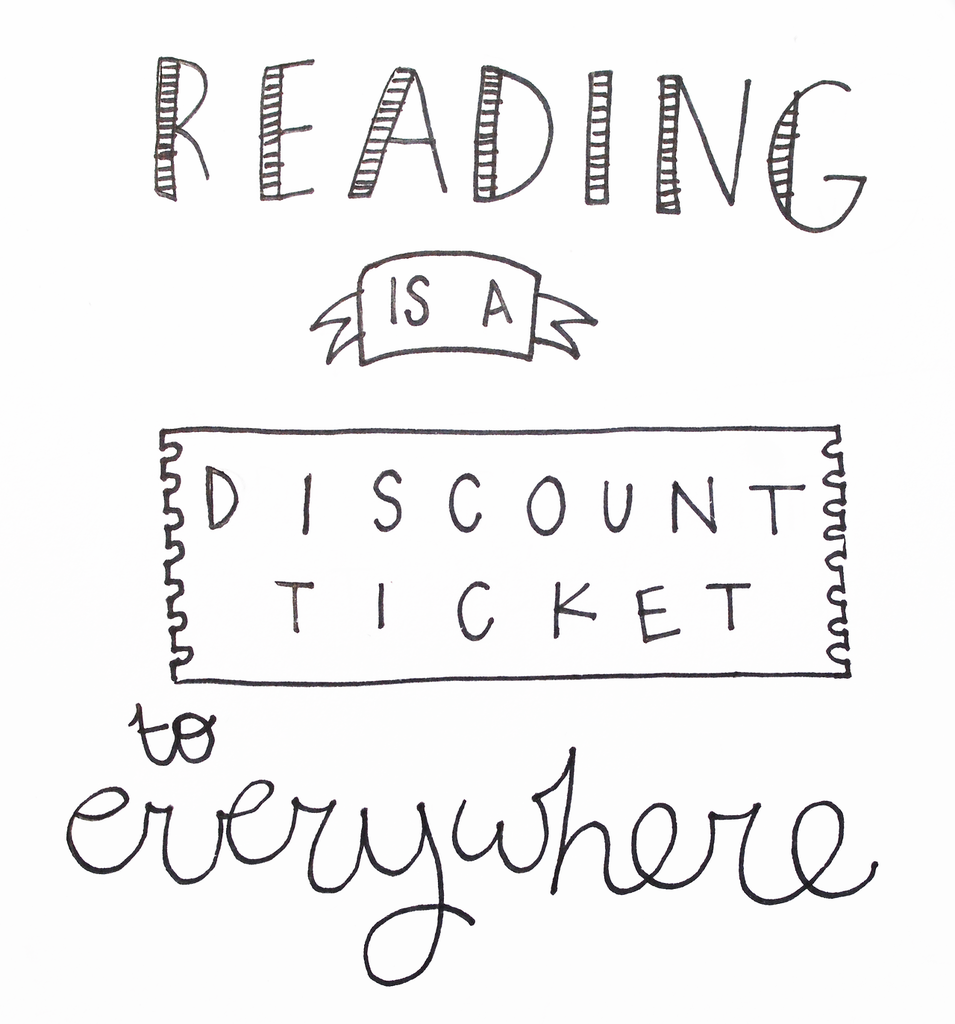 READING
IS A
DISCOUNT
TICKET
to
everywhere